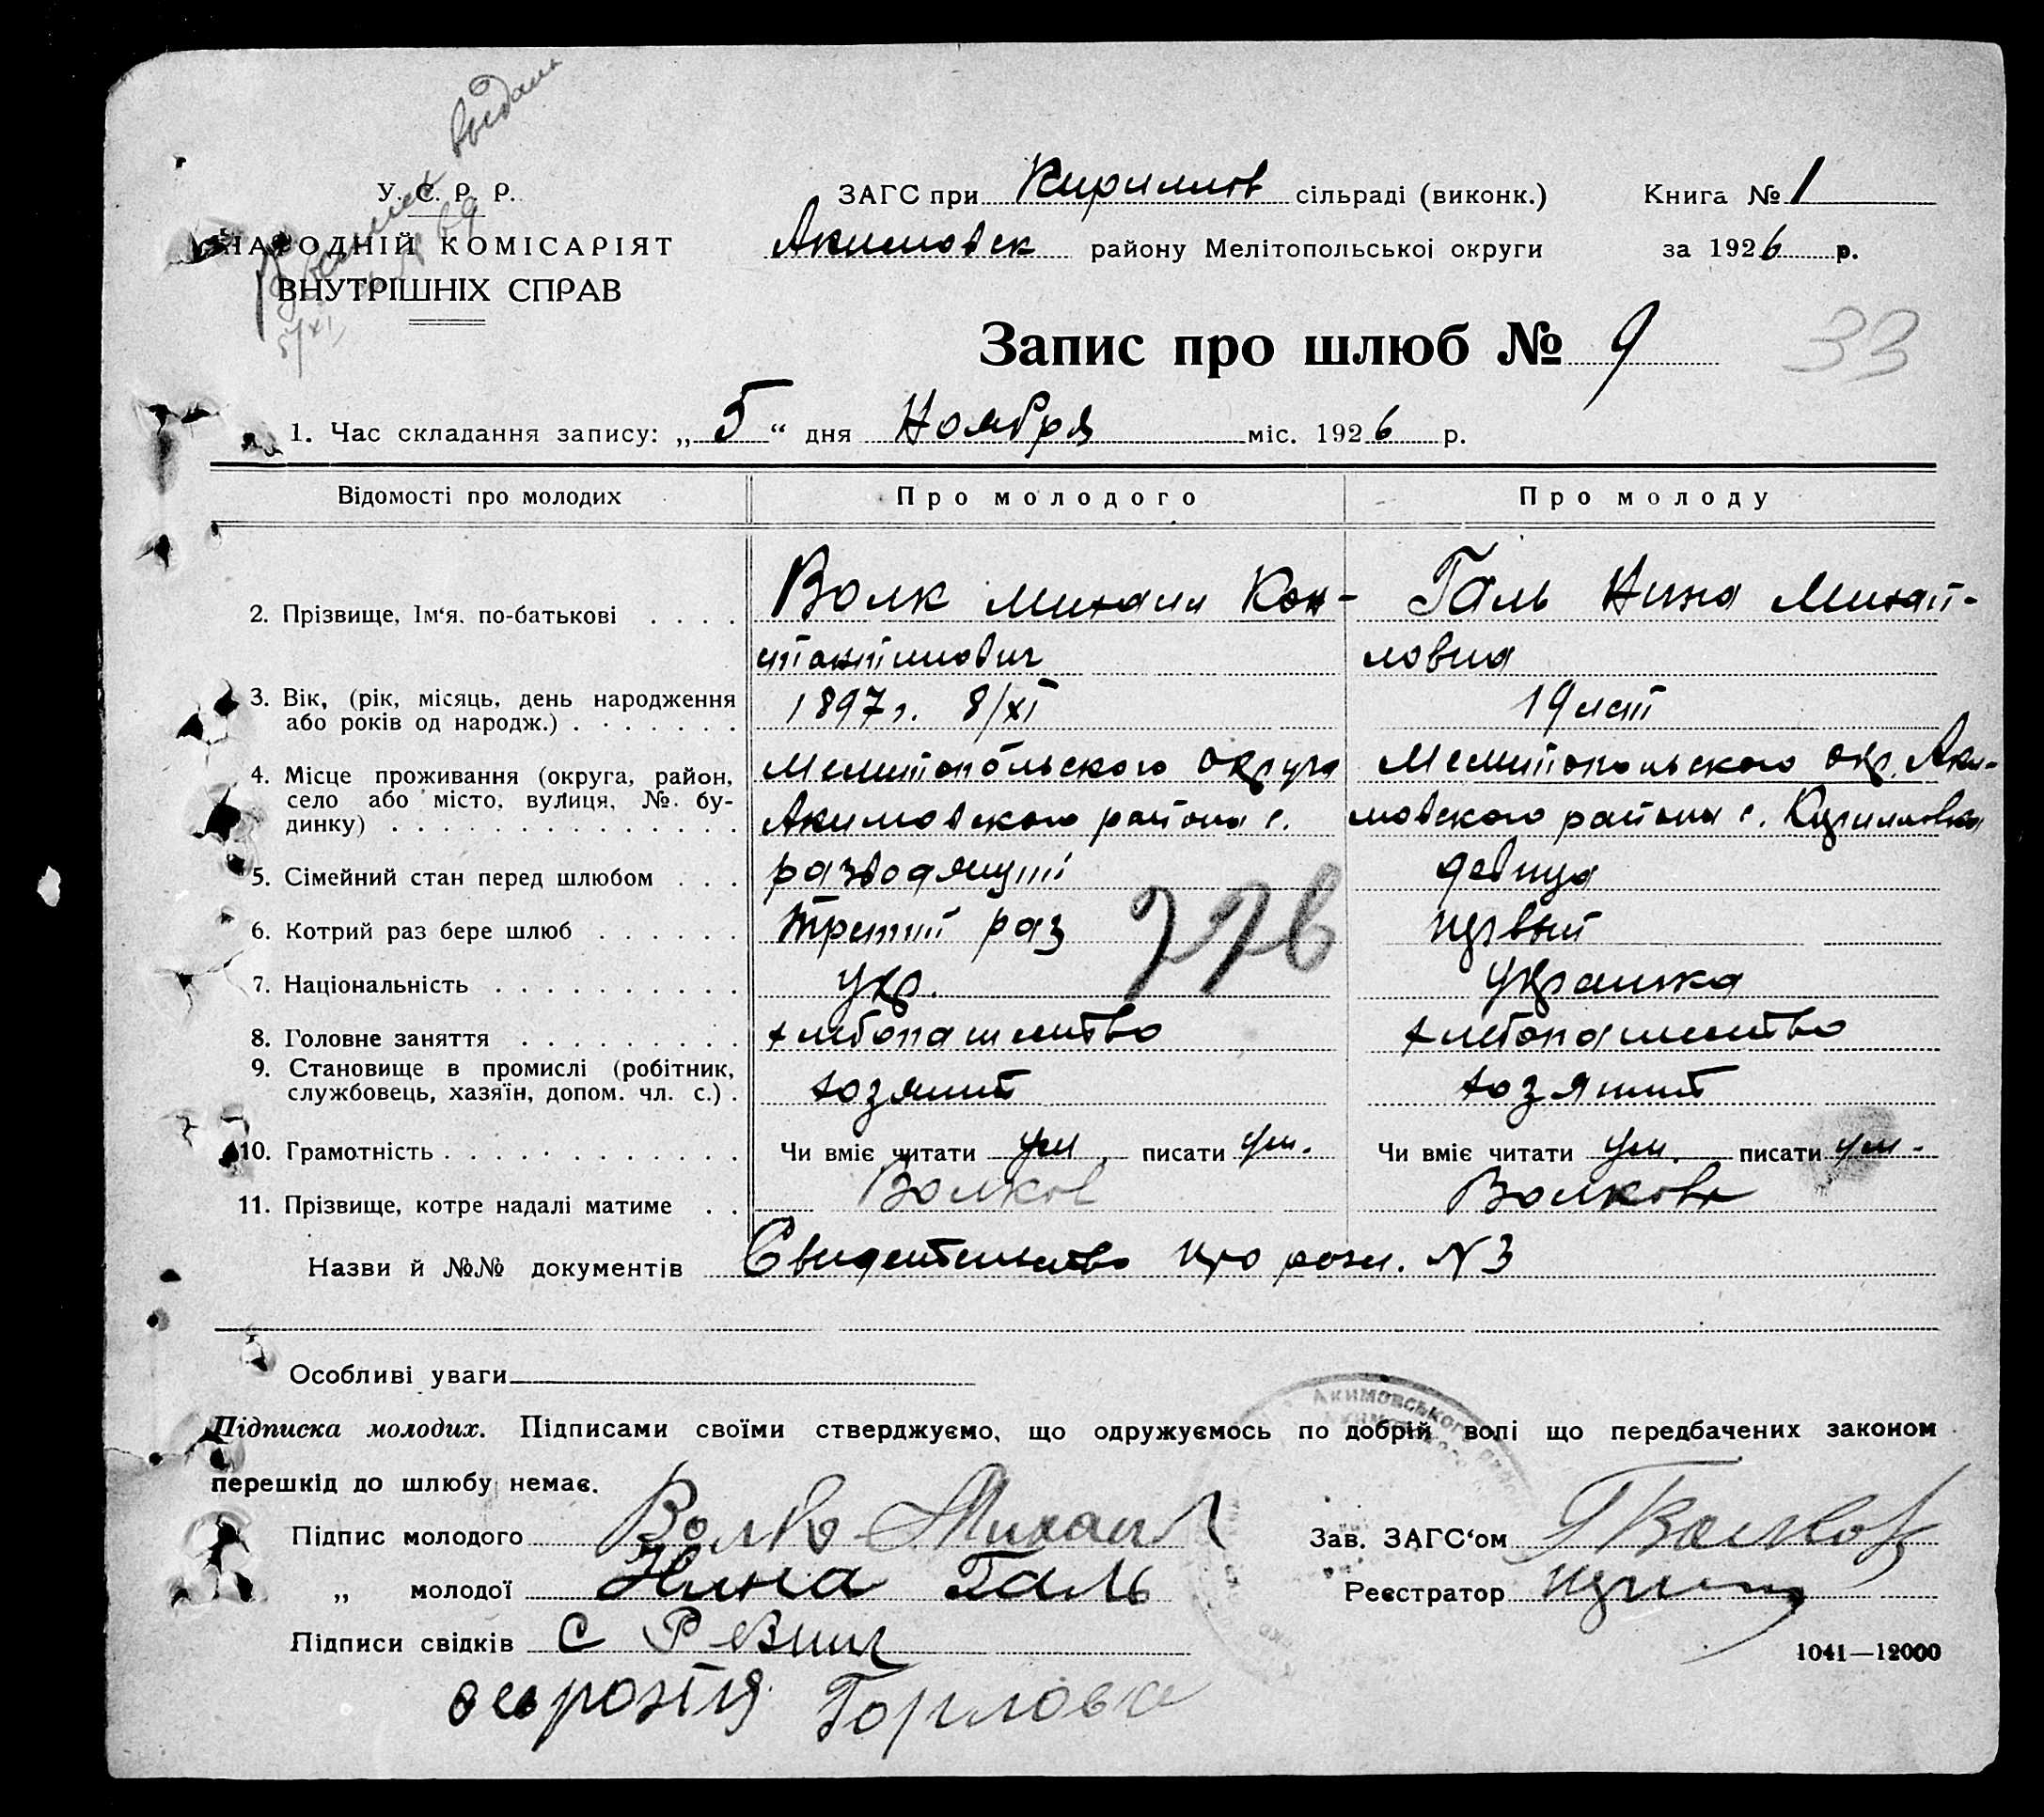 выдана
У. С. Р. Р.
НАРОДНІЙ КОМІСАРІЯТ
ВНУТРІШНІХ СПРАВ
5/XI
ЗАГС при Кириллов сільраді (виконк.) Книга № 1
Акимовск району Мелітопольської округи за 1926 р.
Запис про шлюб № 9
33
1. Час складання запису: „5“ дня Ноября міс. 1926 р.
Відомості про молодих Про молодого Про молоду
2. Прізвище, Ім‘я. по-батькові Волк Михаил Кон- Галь Нина Михай-
стантинович ловна
3. Вік, (рік, місяць, день народження або років од народж.) 1897 г. 8/XI 19 лет
4. Місце проживання (округа, район, Мелитопольского округа Мелитопольского окр. Аки-
село або місто, вулиця, №. бу- Акимовского района с. мовского района с. Кирилловка
динку)
5. Сімейний стан перед шлюбом разводящий девица
6. Котрий раз бере шлюб третий раз первый
7. Національність укр. украинка
8. Головне заняття хлебопашество хлебопашество
9. Становище в промислі (робітник,
службовець, хазяїн, допом. чл. с.). хозяин хозяин
10. Грамотність Чи вміє читати ум. писати ум. Чи вміє читати ум. писати ум.
11. Прізвище, котре надалі матиме Волков Волкова
Назви й №№ документів Свидетельство про N 3
Особливі уваги
Підписка молодих. Підписами своїми стверджуємо, що одружуємось по добрій волі що передбачених законом
перешкід до шлюбу немає.
Підпис молодого Волк Михаил Зав. ЗАГС‘ом Волков
„ молодої Нина Галь Реєстратор
Підписи свідків С Ревин 1041—12000
Горлова
Акимовського